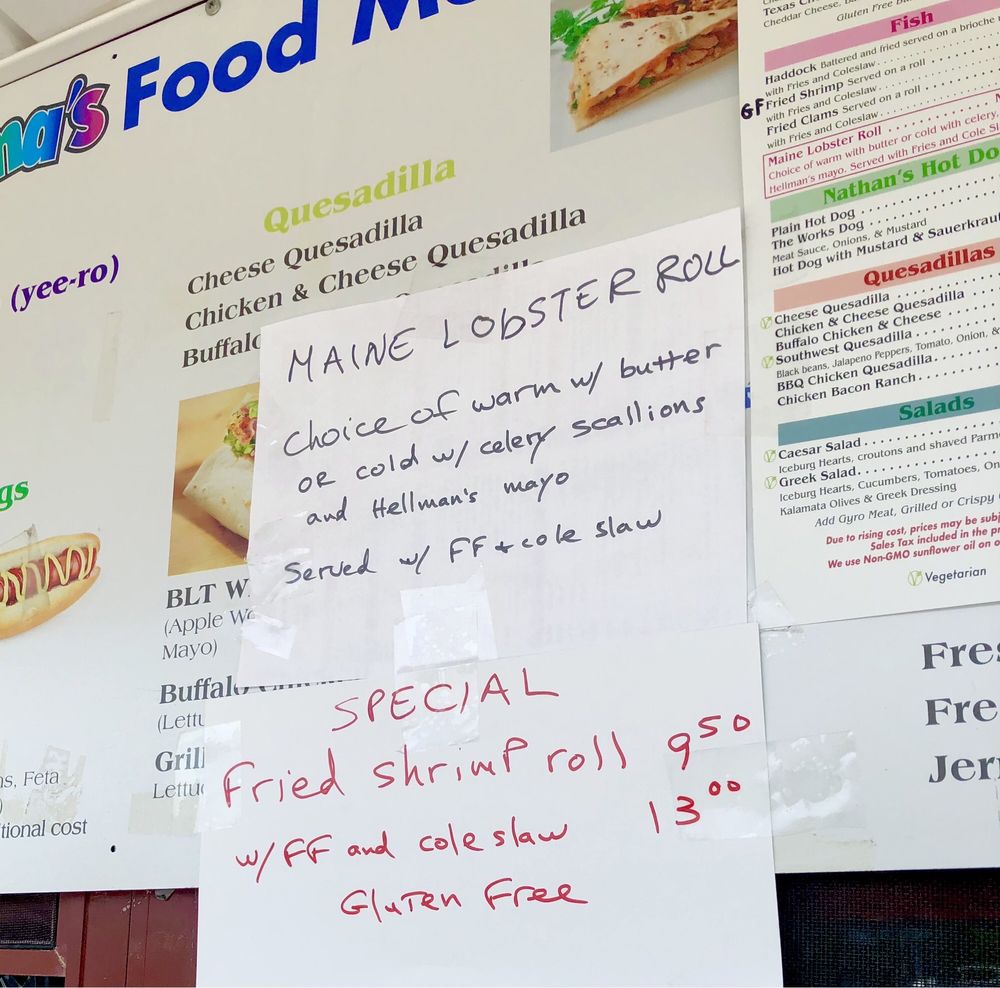 Food
(yee-ro)
Quesadilla
Cheese Quesadilla
Chicken & Cheese Quesadilla
BLT
(Apple
Mayo)
Feta
cost
MAINE LObSTER ROLL
choice of warm w/ butter
OR cold w/ celery scallions
and Hellman's mayo
Served w/ FF + cole slaw
SPECIAL
Fried shrimp roll 9 50
w/ FF and cole slaw 13 00
Gluten Free
Cheddar Cheese,
Gluten Free
Fish
Haddock Battered and fried served on a brioche
with Fries and Coleslaw
GF Fried Shrimp Served on a roll
with Fries and Coleslaw
Fried Clams Served on a roll
with Fries and Coleslaw
Maine Lobster Roll
Choice of warm with butter or cold with celery,
Hellman's mayo. Served with Fries and Cole
Nathan's Hot
Plain Hot Dog
The Works Dog
Meat Sauce, Onions, & Mustard
Hot Dog with Mustard & Sauerkraut
Quesadillas
Cheese Quesadilla
Chicken & Cheese Quesadilla
Buffalo Chicken & Cheese
Southwest Quesadilla
Black beans, Jalapeno Peppers, Tomato, Onion, &
BBQ Chicken Quesadilla
Chicken Bacon Ranch
Salads
Caesar Salad
Iceburg Hearts, croutons and shaved
Greek Salad
Iceburg Hearts, Cucumbers, Tomatoes,
Kalamata Olives & Greek Dressing
Add Gyro Meat, Grilled or Crispy
Due to rising cost, prices may be
Sales Tax included in the
We use Non-GMO sunflower oil on
Vegetarian